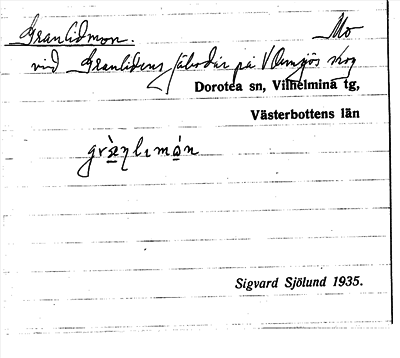 Granlidmon. Mo
vid Granlidens fäbodar på V Ormsjös skog
Dorotea sn, Vilhelmina tg,
Västerbottens län
Sigvard Sjölund 1935.